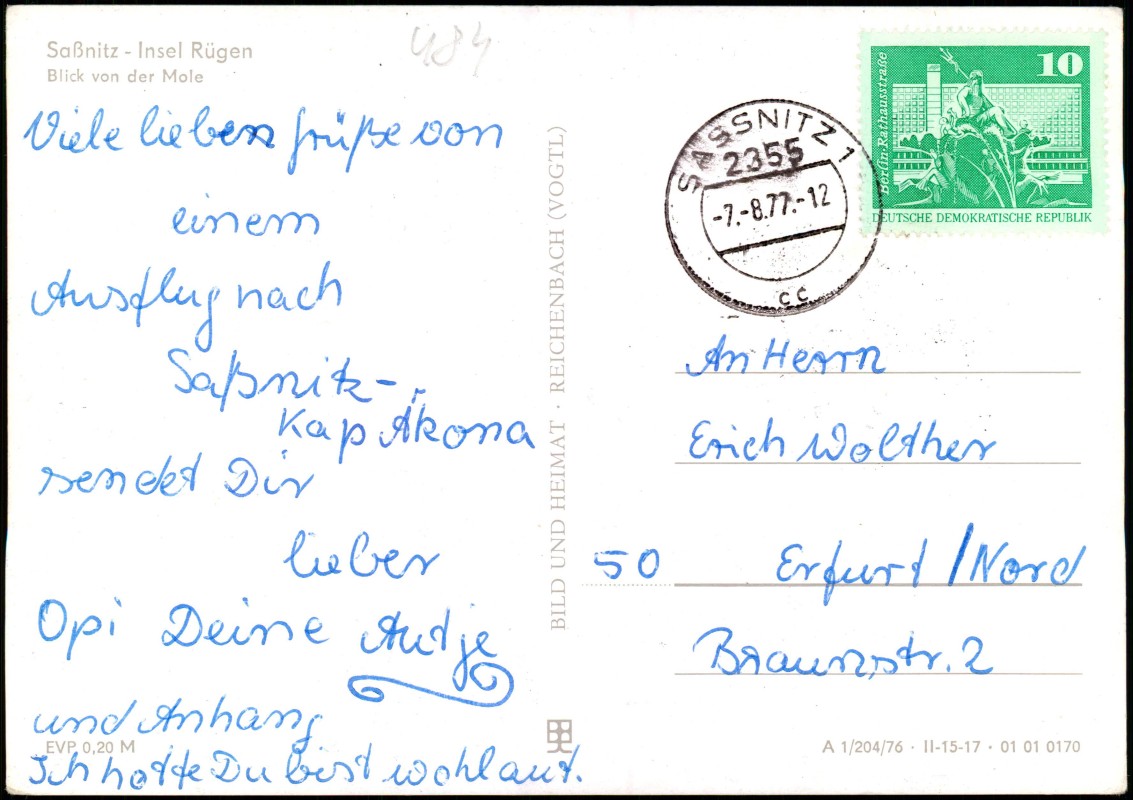 Saßnitz - Insel Rügen
Blick von der Mole
484
Viele lieben Grüße von
einem
Ausflug nach
Saßnitz-
Kap Akona
sendet Dir
lieber
Opi Deine Antje
und Anhang
Ich hoffe Du bist wohlauf.
EVP 0,20 M
BILD UND HEIMAT · REICHENBACH (VOGTL)
SASSNITZ 1
2355
-7.-8.77.-12
cc
10
Berlin-Rathausstraße
DEUTSCHE DEMOKRATISCHE REPUBLIK
An Herrn
Erich Wolther
50 Erfurt/Nord
Braunstr. 2
A 1/204/76 · II-15-17 · 01 01 0170